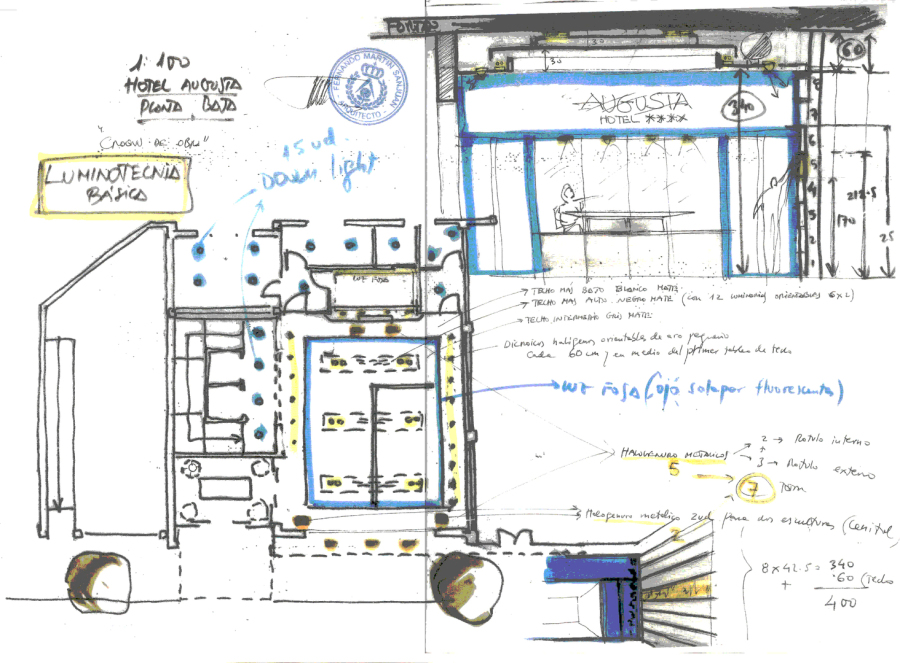 1:100
HOTEL AUGUSTA
PLANTA BAJA
"CROQUIS DE OBRA"
LUMINOTECNIA
BÁSICA
FERNANDO MARTIN SANJUAN
ARQUITECTO
15 ud.
Down light
LUZ FOSA
30
30
60
AUGUSTA
HOTEL ****
340
8
7
6
5
4
3
2
1
212.5
170
25
TECHO MAS BAJO BLANCO MATE
TECHO MAS ALTO. NEGRO MATE (CON 12 LUMINARIAS ORIENTABLES 6x2)
TECHO INTERMEDIO GRIS MATE
Dicroicos halógenos orientables de aro pequeño
Cada 60 cm y en medio del primer tablero de techo
LUZ FOSA (ojo solapar fluorescentes)
HALOGENURO METALICO
2 → Rotulo interno
+
3 → Rotulo externo
5
7
70w
Halogenuro metalico 2ud para dos esculturas (Cenital)
2
8 x 42.5 = 340
+ 60 (techo
400